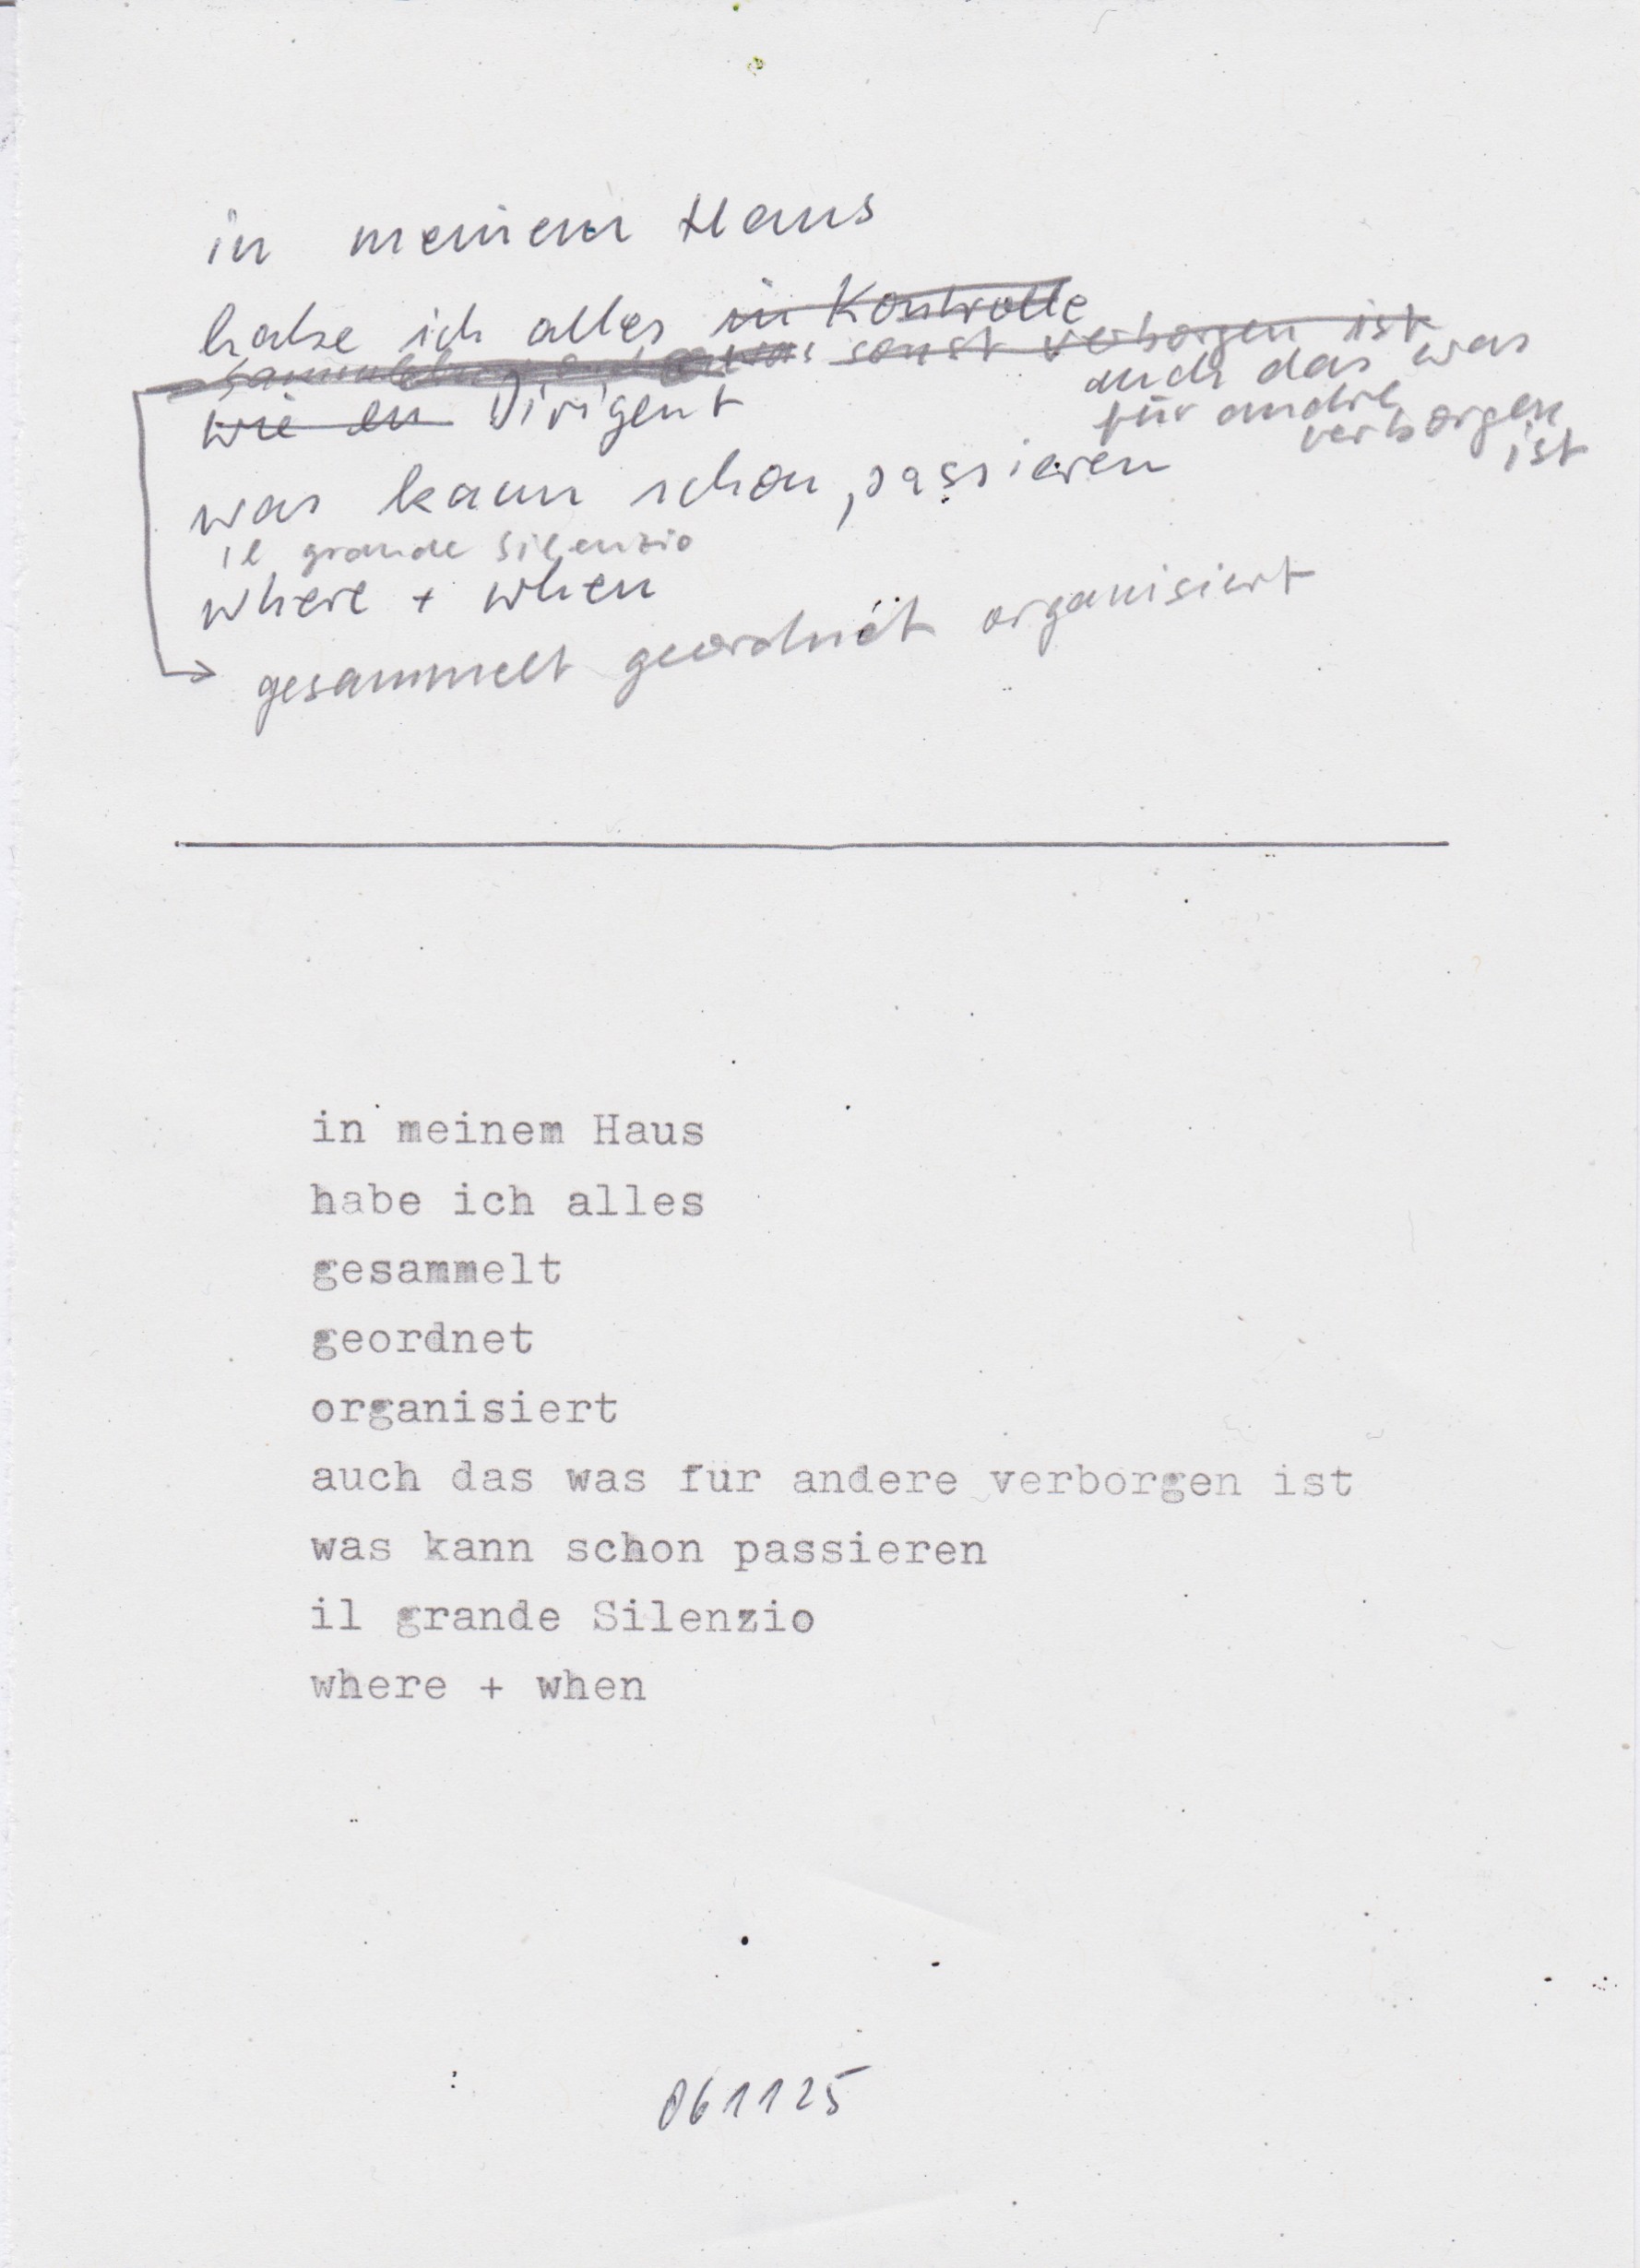 in meinem Haus
habe ich alles in Kontrolle
was sonst verborgen ist
auch das was
für andre
verborgen
ist
wie en Dirigent
was kann schon passieren
il grande Silenzio
where + when
gesammelt geordnet organisiert
in meinem Haus
habe ich alles
gesammelt
geordnet
organisiert
auch das was für andere verborgen ist
was kann schon passieren
il grande Silenzio
where + when
061125